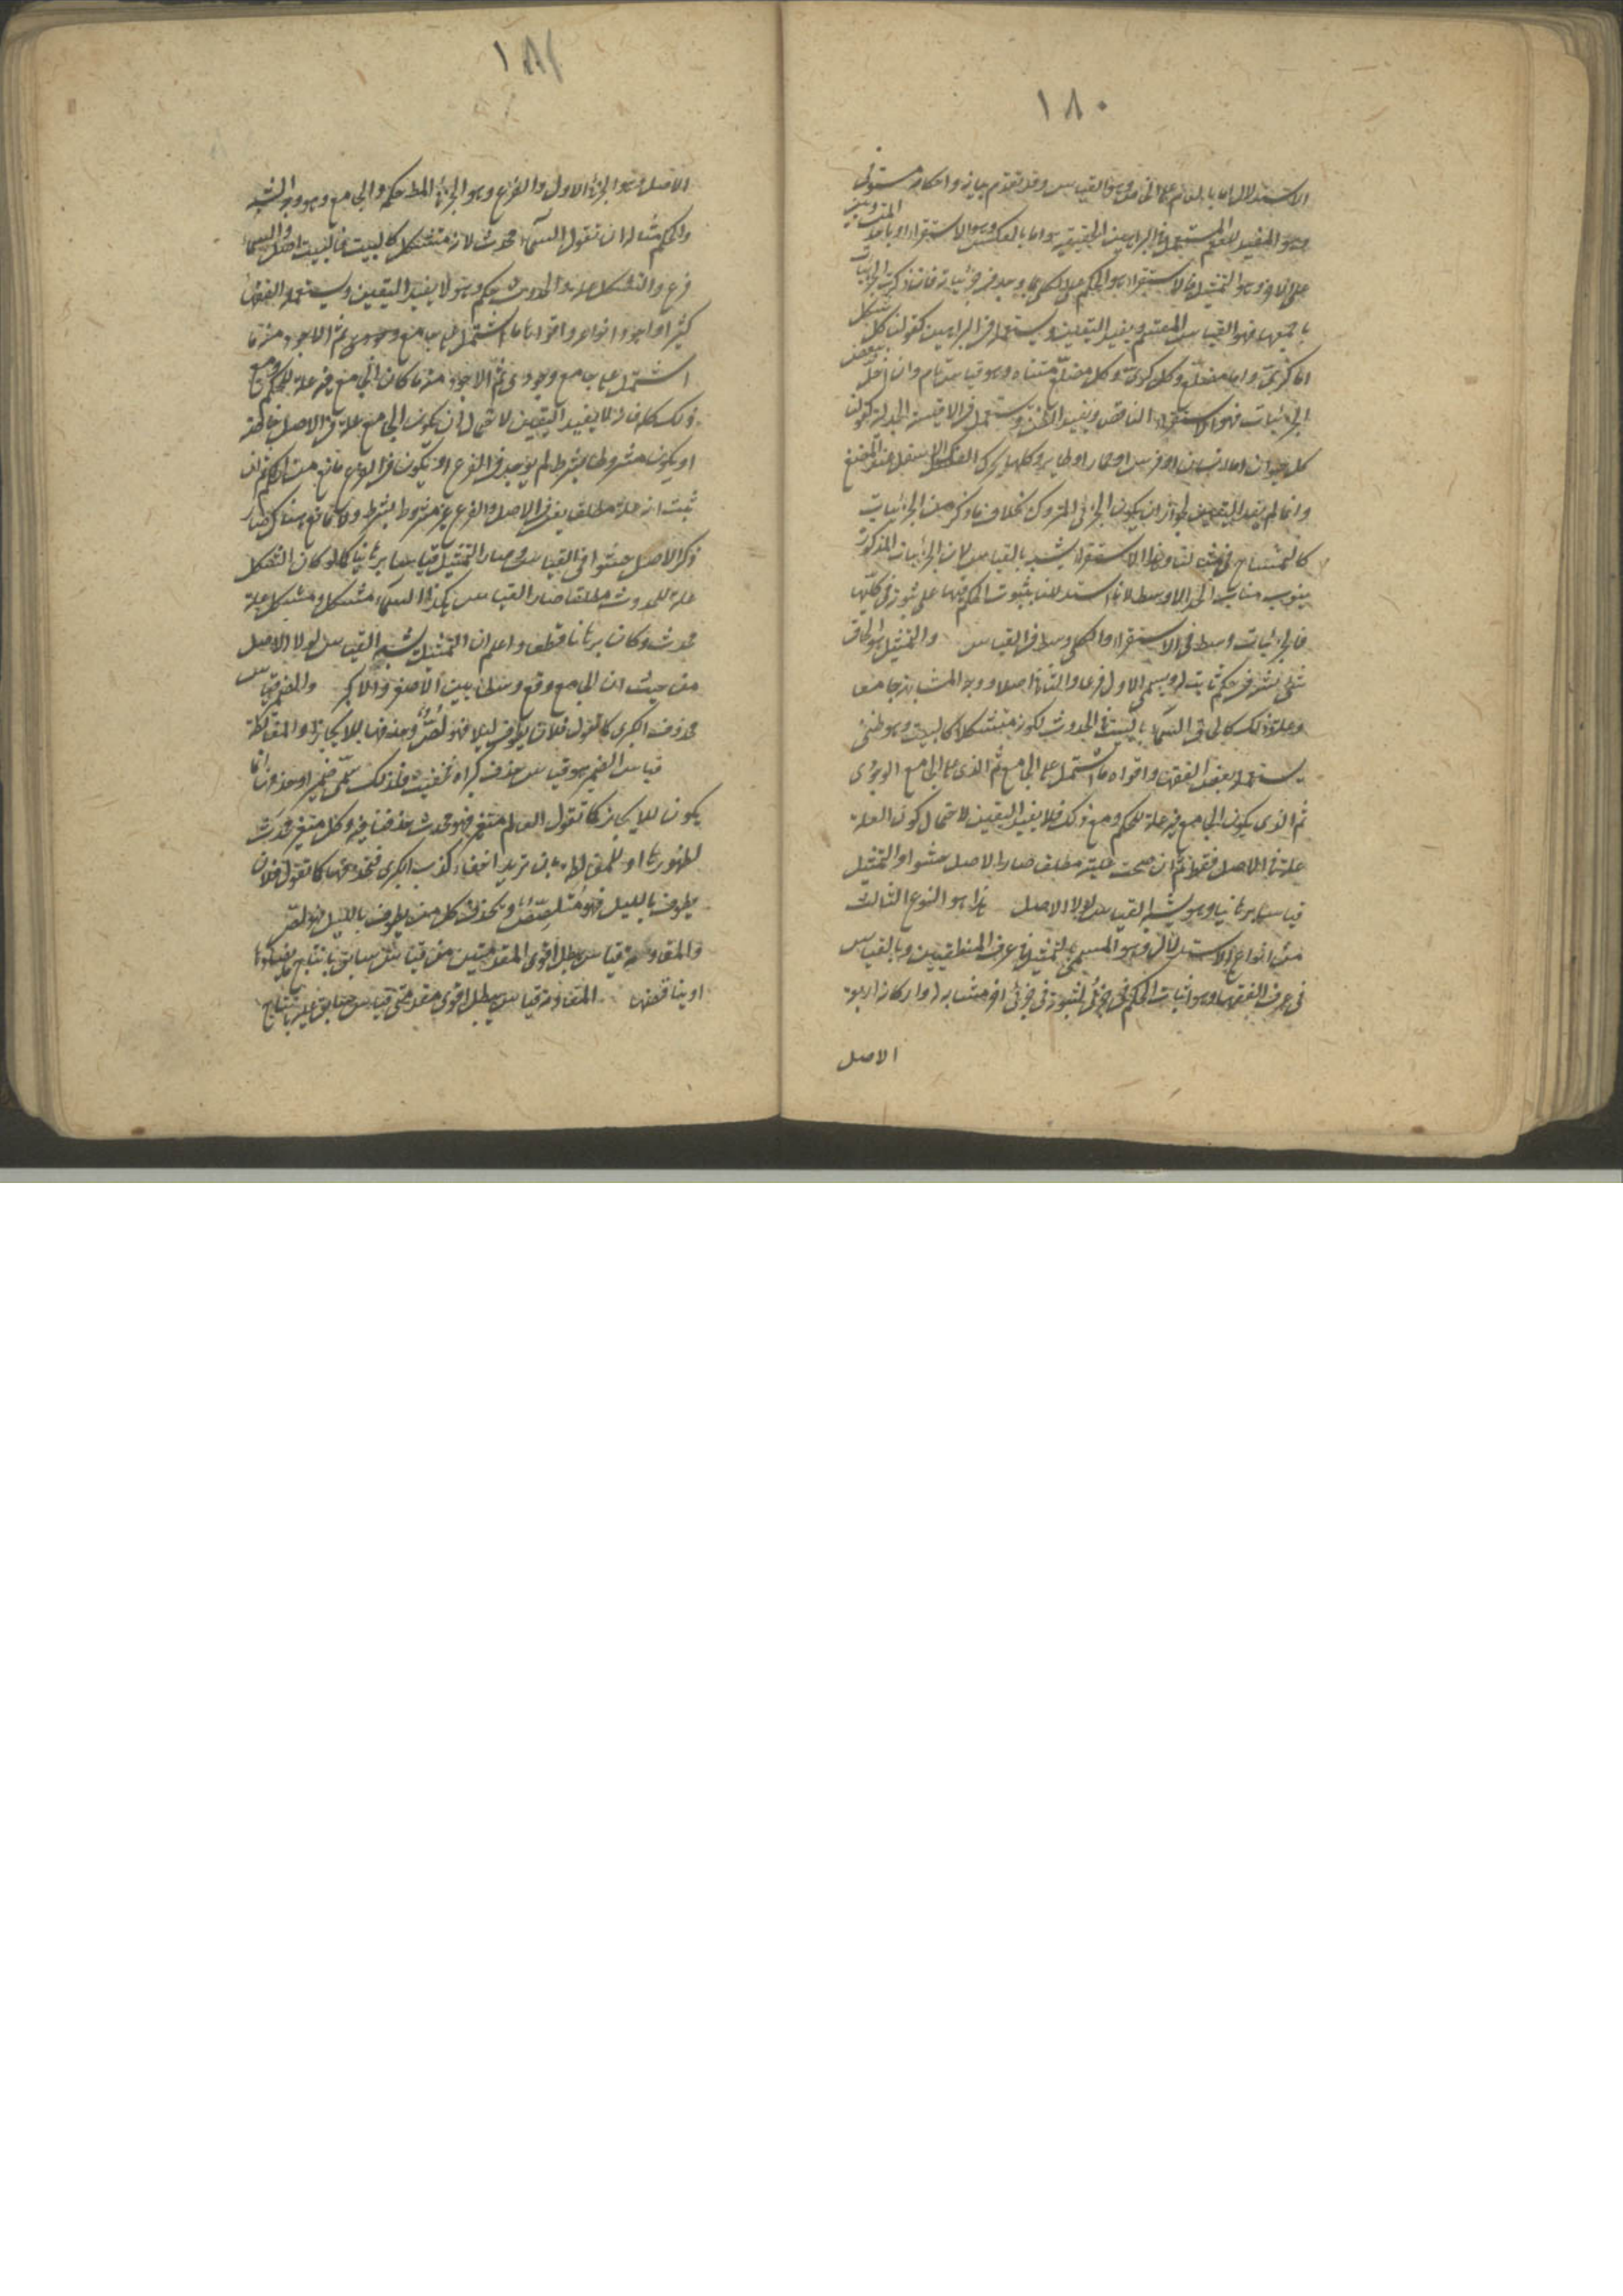 ١٨٠
الاستدلال اما بالعام على الخاص وهو القياس وقد تقدم بيانه واحكامه مستوفى
وهو المفيد للعلم المستعمل في البراهين الحقيقية واما بالعكس وهو الاستقراء او باحد المتساويين
على الآخر وهو التمثيل فالاستقراء هو الحكم على كلي بما وجد في جزئياته فان ذكرت الجزئيات
باجمعها فهو القياس المقسم ويفيد اليقين ويستعمل في البراهين كقولنا كل شكل
اما كرى واما مضلع وكل كرى وكل مضلع متناه وهو قياس تام وان اخل ببعض
الجزئيات فهو الاستقراء الناقص ويفيد الظن ويستعمل في الاقيسة الجدلية كقولنا
كل حيوان اما انسان او فرس او حمار او طاير وكلها يحرك الفك الاسفل عند المضغ
وانما لم يفد اليقين لجواز ان يكون الجزئي المتروك بخلاف ما ذكر من الجزئيات
كالتمساح في مثالنا وهذا الاستقراء يشبه بالقياس لان الجزئيات المذكورة
ينوب مناب الحد الاوسط لانا استدللنا بثبوت الحكم فيها على ثبوته في كليها
فالجزئيات وسط في الاستقراء والكلي وسط في القياس والتمثيل هو الحاق
شئ بشئ في حكم ثابت له ويسمى الاول فرعا والثاني اصلا ووجه المشابهة جامعا
وعلة وذلك كالحاق السماء بالبيت في الحدوث لكونه متشكلا كالبيت وهو ظني
يستعمله بعض الفقهاء واقواه ما اشتمل على الجامع ثم الذى على الجامع الوجودى
ثم الذى يكون الجامع فيه علة للحكم ومع ذلك فلا يفيد اليقين لاحتمال كون العلة
علة في الاصل فقط ثم ان صحت عليته مطلقا صار الاصل حشوا والتمثيل
قياسا برهانيا وهو يشبه القياس لولا الاصل هذا هو النوع الثالث
من انواع الاستدلال وهو المسمى بالتمثيل في عرف المنطقيين وبالقياس
في عرف الفقهاء وهو اثبات الحكم في جزئى لثبوته في جزئى آخر مشابه له واركانه اربعة
الاصل
١٨١
الاصل وهو الجزئى الاول والفرع وهو الجزئى المط حكمه والجامع وهو وجه الشبه
والحكم مثاله ان نقول السماء محدث لانه متشكل كالبيت فالبيت اصل والسماء
فرع والتشكل علة والحدوث حكم وهو لا يفيد اليقين ويستعمله الفقهاء
كثيرا واجود انواعه واقواها ما اشتمل على جامع وجودى ثم الاجود منه ما
اشتمل على جامع وجودى ثم الاجود منه ما كان الجامع فيه علة للحكم ومع
ذلك كله فانه لا يفيد اليقين لاحتمال ان يكون الجامع علة في الاصل خاصة
او يكون مشروطا بشرط لم يوجد في الفرع او يكون في الفرع مانع من الحكم ثم ان
ثبت انه علة مطلقا في الاصل والفرع غير مشروط بشرط ولا مانع هناك صار
ذكر الاصل حشوا في القياس وصار التمثيل قياسا برهانيا كما لو كان التشكل
علة للحدوث مطلقا صار القياس هكذا السماء متشكل ومتشكل علة
محدث وكان برهانا قطعا واعلم ان التمثيل يشبه القياس لولا الاصل
من حيث ان الجامع وقع وسطا بين الاصغر والاكبر والضمير قياس
محذوف الكبرى كما تقول فلان يطوف ليلا فهو لص وحذفها للايجاز او المغالطة
قياس الضمير هو قياس حذف كبراه فخفيت فلذلك سمى ضميرا وحذفها اما
يكون للايجاز كما تقول العالم متغير فهو محدث حذفنا فيه وكل متغير محدث
لظهورها او للمغالطة بان تريد اخفاء كذب الكبرى فتحذفها كما تقول فلان
يطوف بالليل فهو متلصص وتحذف كل من يطوف بالليل فهو لص
والمقاومة قياس يبطل اقوى المقدمتين من قياس سابق بانتاج ما يضادها
او يناقضها المقاومة قياس يبطل اقوى مقدمتى قياس سابق عليه بانتاج